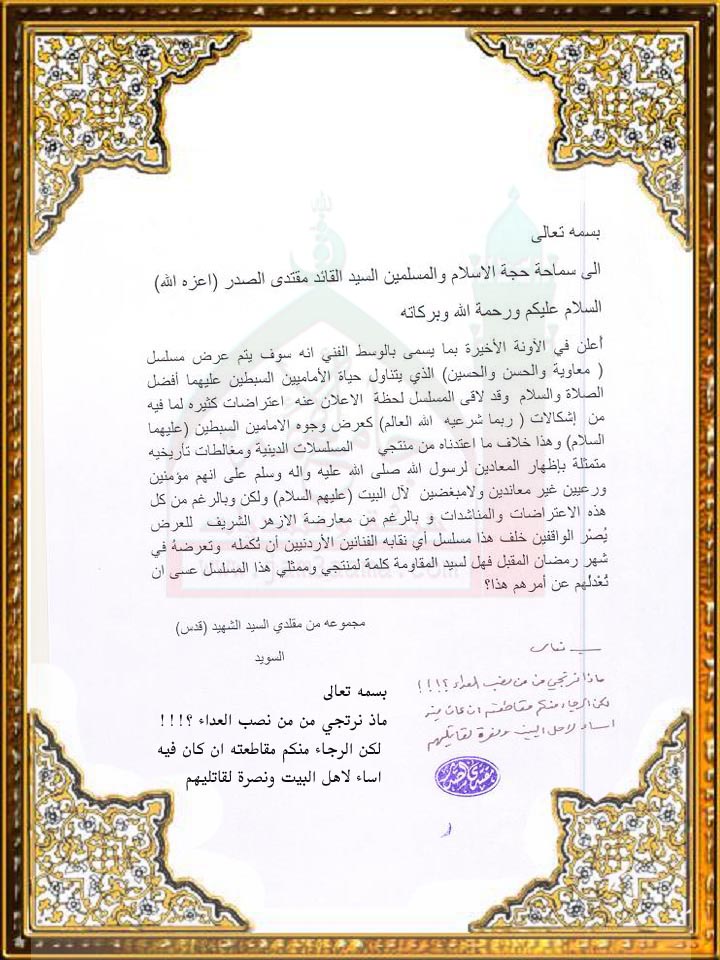 بسمه تعالى
الى سماحة حجة الاسلام والمسلمين السيد القائد مقتدى الصدر (اعزه الله)
السلام عليكم ورحمة الله وبركاته
أعلن في الآونة الأخيرة بما يسمى بالوسط الفني انه سوف يتم عرض مسلسل
( معاوية والحسن والحسين) الذي يتناول حياة الأماميين السبطين عليهما أفضل
الصلاة والسلام وقد لاقى المسلسل لحظة الاعلان عنه اعتراضات كثيره لما فيه
من إشكالات ( ربما شرعيه الله العالم) كعرض وجوه الامامين السبطين (عليهما
السلام) وهذا خلاف ما اعتدناه من منتجي المسلسلات الدينية ومغالطات تأريخيه
متمثلة بإظهار المعادين لرسول الله صلى الله عليه واله وسلم على انهم مؤمنين
ورعيين غير معاندين ولامبغضين لآل البيت (عليهم السلام) ولكن وبالرغم من كل
هذه الاعتراضات والمناشدات و بالرغم من معارضة الازهر الشريف للعرض
يُصْر الواقفين خلف هذا مسلسل أي نقابه الفنانين الأردنيين أن تُكمله وتعرضهُ في
شهر رمضان المقبل فهل لسيد المقاومة كلمة لمنتجي وممثلي هذا المسلسل عسى ان
تُعْدلُهم عن أمرهم هذا؟
مجموعه من مقلدي السيد الشهيد (قدس)
السويد
بسمه تعالى
ماذا نرتجي من من نصب العداء ؟!!!
لكن الرجاء منكم مقاطعته ان كان فيه
اساء لاهل البيت ونصرة لقاتليهم
مقتدى الصدر
بسمه تعالى
ماذ نرتجي من من نصب العداء ؟!!!
لكن الرجاء منكم مقاطعته ان كان فيه
اساء لاهل البيت ونصرة لقاتليهم